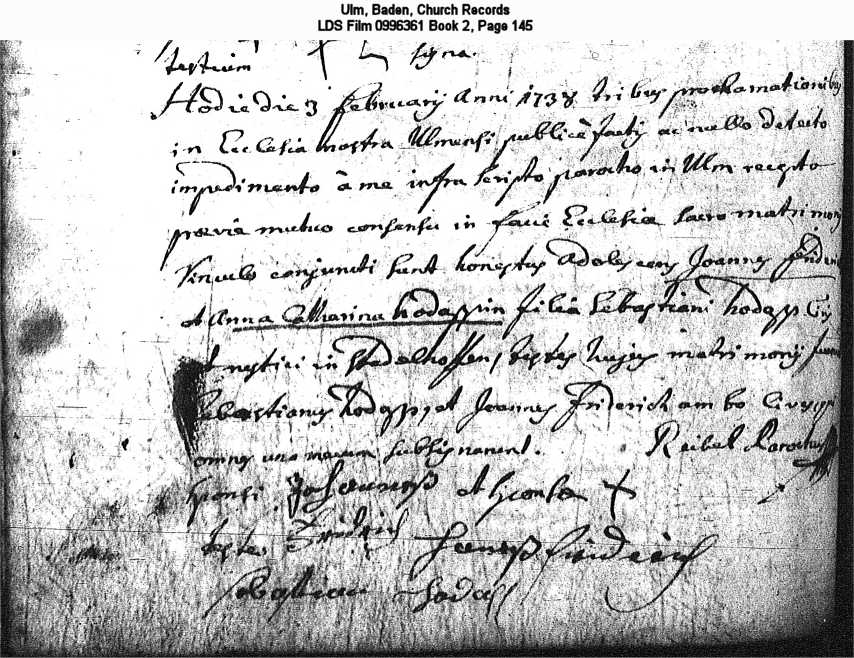 Ulm, Baden, Church Records
LDS Film 0996361 Book 2, Page 145
testium signa.
Hodie die 3 februarij Anni 1738 tribus proclamationibus
in Ecclesia nostra Ulmensi publice factis ac nullo detecto
impedimento â me infra scripto parocho in Ulm recepto
prævia mutuo consensu in facie Ecclesiæ sacro matrimonij
Vinculo conjuncti sunt honestus Adolescens Joannes
et Anna Catharina hodappin filia Sebastiani hodapp
et rustici in Stadelhoffen, testes hujus matrimonij
Sebastianus hodapp, et Joannes Friderich ambo
omnes una mecum subsignarunt. Reibel Parochus
sponsi Johannes et sponsa +
testes Fridrich Hanns fridrich
sebastian hodapp